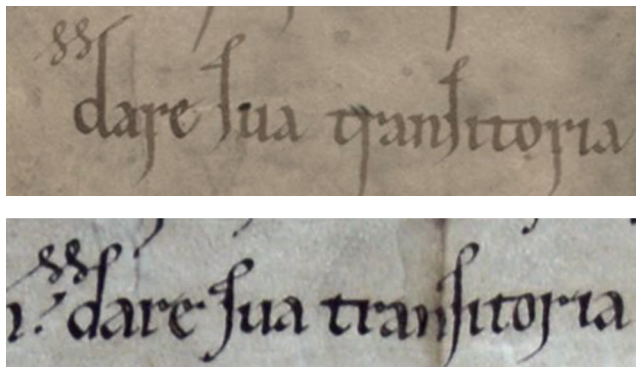 dare sua transitoria
dare sua transitoria